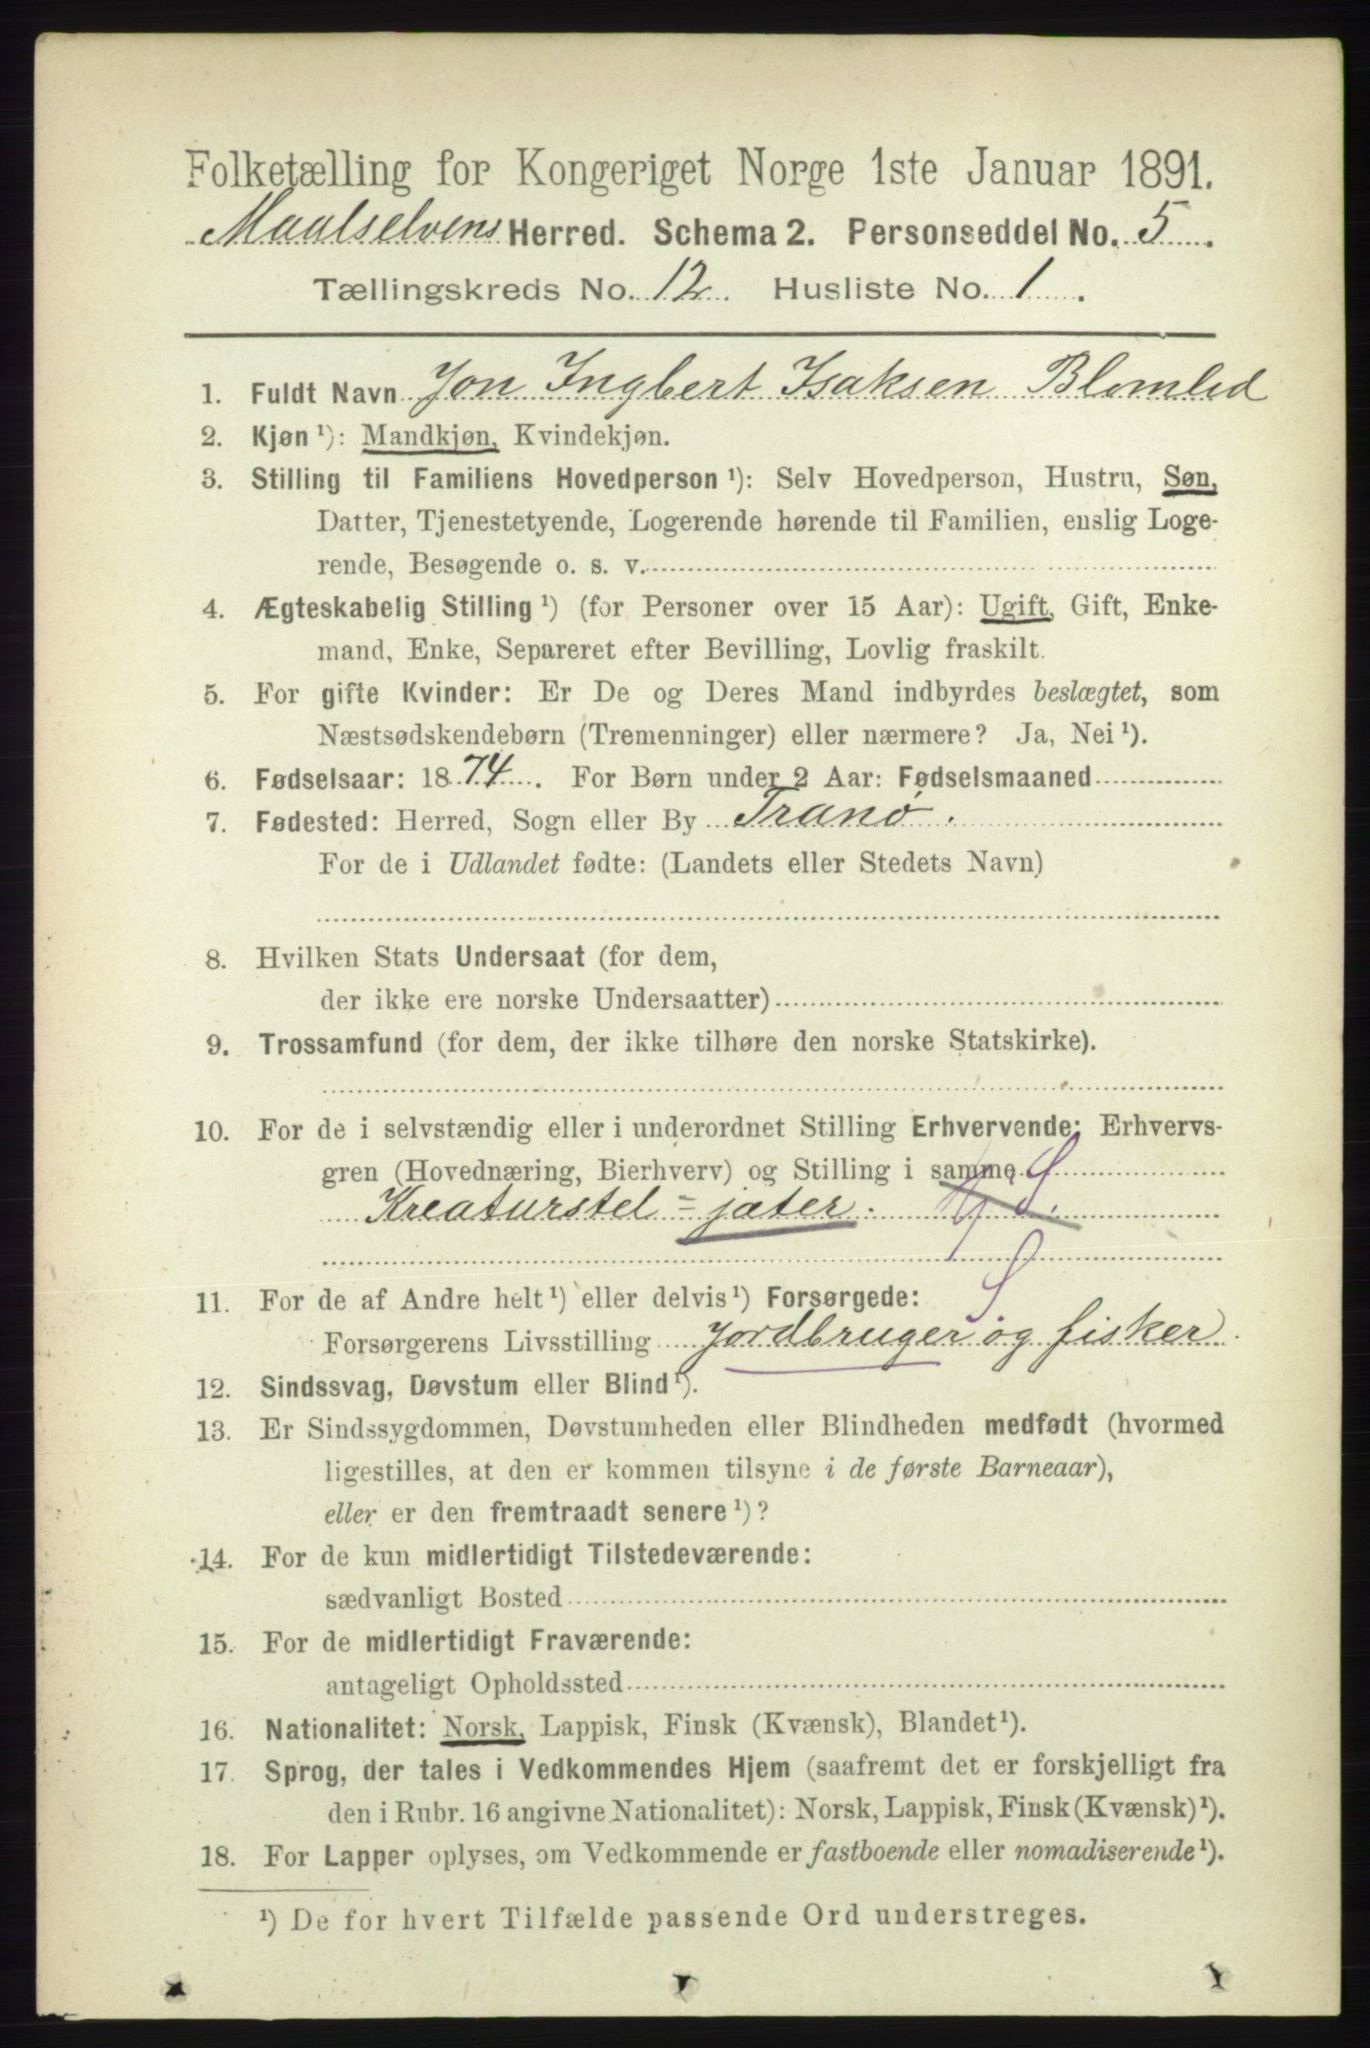 Folketælling for Kongeriget Norge 1ste Januar 1891.
Maalselvens Herred. Schema 2. Personseddel No. 5.
Tællingskreds No. 12. Husliste No. 1.
1. Fuldt Navn Jon Ingbert Isaksen Blomlid
2. Kjøn ¹): Mandkjøn, Kvindekjøn.
3. Stilling til Familiens Hovedperson ¹): Selv Hovedperson, Hustru, Søn,
Datter, Tjenestetyende, Logerende hørende til Familien, enslig Loge-
rende, Besøgende o. s. v.
4. Ægteskabelig Stilling ¹) (for Personer over 15 Aar): Ugift, Gift, Enke-
mand, Enke, Separeret efter Bevilling, Lovlig fraskilt.
5. For gifte Kvinder: Er De og Deres Mand indbyrdes beslægtet, som
Næstsødskendebørn (Tremenninger) eller nærmere? Ja, Nei ¹).
6. Fødselsaar: 1874. For Børn under 2 Aar: Fødselsmaaned
7. Fødested: Herred, Sogn eller By Tranø.
For de i Udlandet fødte: (Landets eller Stedets Navn)
8. Hvilken Stats Undersaat (for dem,
der ikke ere norske Undersaatter)
9. Trossamfund (for dem, der ikke tilhøre den norske Statskirke).
10. For de i selvstændig eller i underordnet Stilling Erhvervende: Erhvervs-
gren (Hovednæring, Bierhverv) og Stilling i samme S
Kreaturstel = jæter.
S
11. For de af Andre helt ¹) eller delvis ¹) Forsørgede:
Forsørgerens Livsstilling Jordbruger og fisker.
12. Sindssvag, Døvstum eller Blind ¹).
13. Er Sindssygdommen, Døvstumheden eller Blindheden medfødt (hvormed
ligestilles, at den er kommen tilsyne i de første Barneaar),
eller er den fremtraadt senere ¹)?
14. For de kun midlertidigt Tilstedeværende:
sædvanligt Bosted
15. For de midlertidigt Fraværende:
antageligt Opholdssted
16. Nationalitet: Norsk, Lappisk, Finsk (Kvænsk), Blandet ¹).
17. Sprog, der tales i Vedkommendes Hjem (saafremt det er forskjelligt fra
den i Rubr. 16 angivne Nationalitet): Norsk, Lappisk, Finsk (Kvænsk) ¹).
18. For Lapper oplyses, om Vedkommende er fastboende eller nomadiserende ¹).
¹) De for hvert Tilfælde passende Ord understreges.